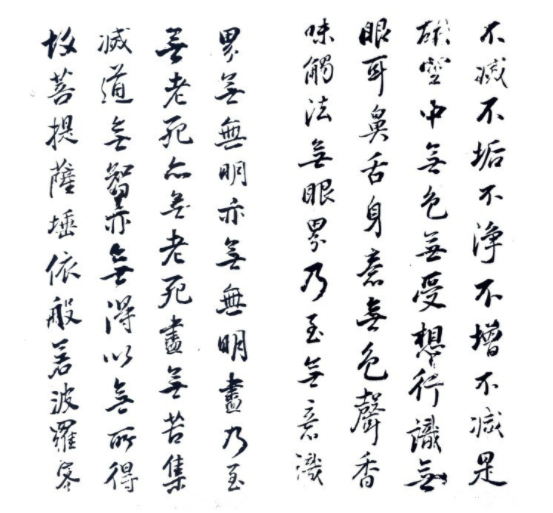 不滅不垢不淨不增不減是
故空中無色無受想行識無
眼耳鼻舌身意無色聲香
味觸法無眼界乃至無意識
界無無明亦無無明盡乃至
無老死亦無老死盡無苦集
滅道無智亦無得以無所得
故菩提薩埵依般若波羅蜜